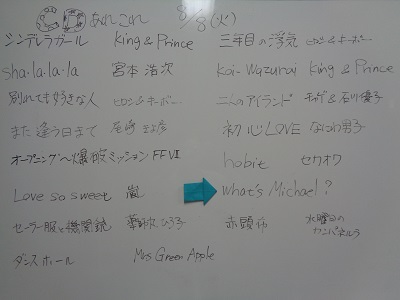 CD あれこれ 8/8(火)
シンデレラガール King & Prince
sha・la・la・la 宮本 浩次
別れても好きな人 ヒロシ&キーボー
また逢う日まで 尾崎 紀世彦
オープニング〜爆破ミッション FFⅦ
Love so sweet 嵐
セーラー服と機関銃 薬師丸ひろ子
ダンスホール Mrs Green Apple
三年目の浮気 ヒロシ&キーボー
koi-wazurai King & Prince
二人のアイランド &石川優子
初心LOVE なにわ男子
habit セカオワ
What's Michael?
赤頭巾 水曜日のカンパネルラ